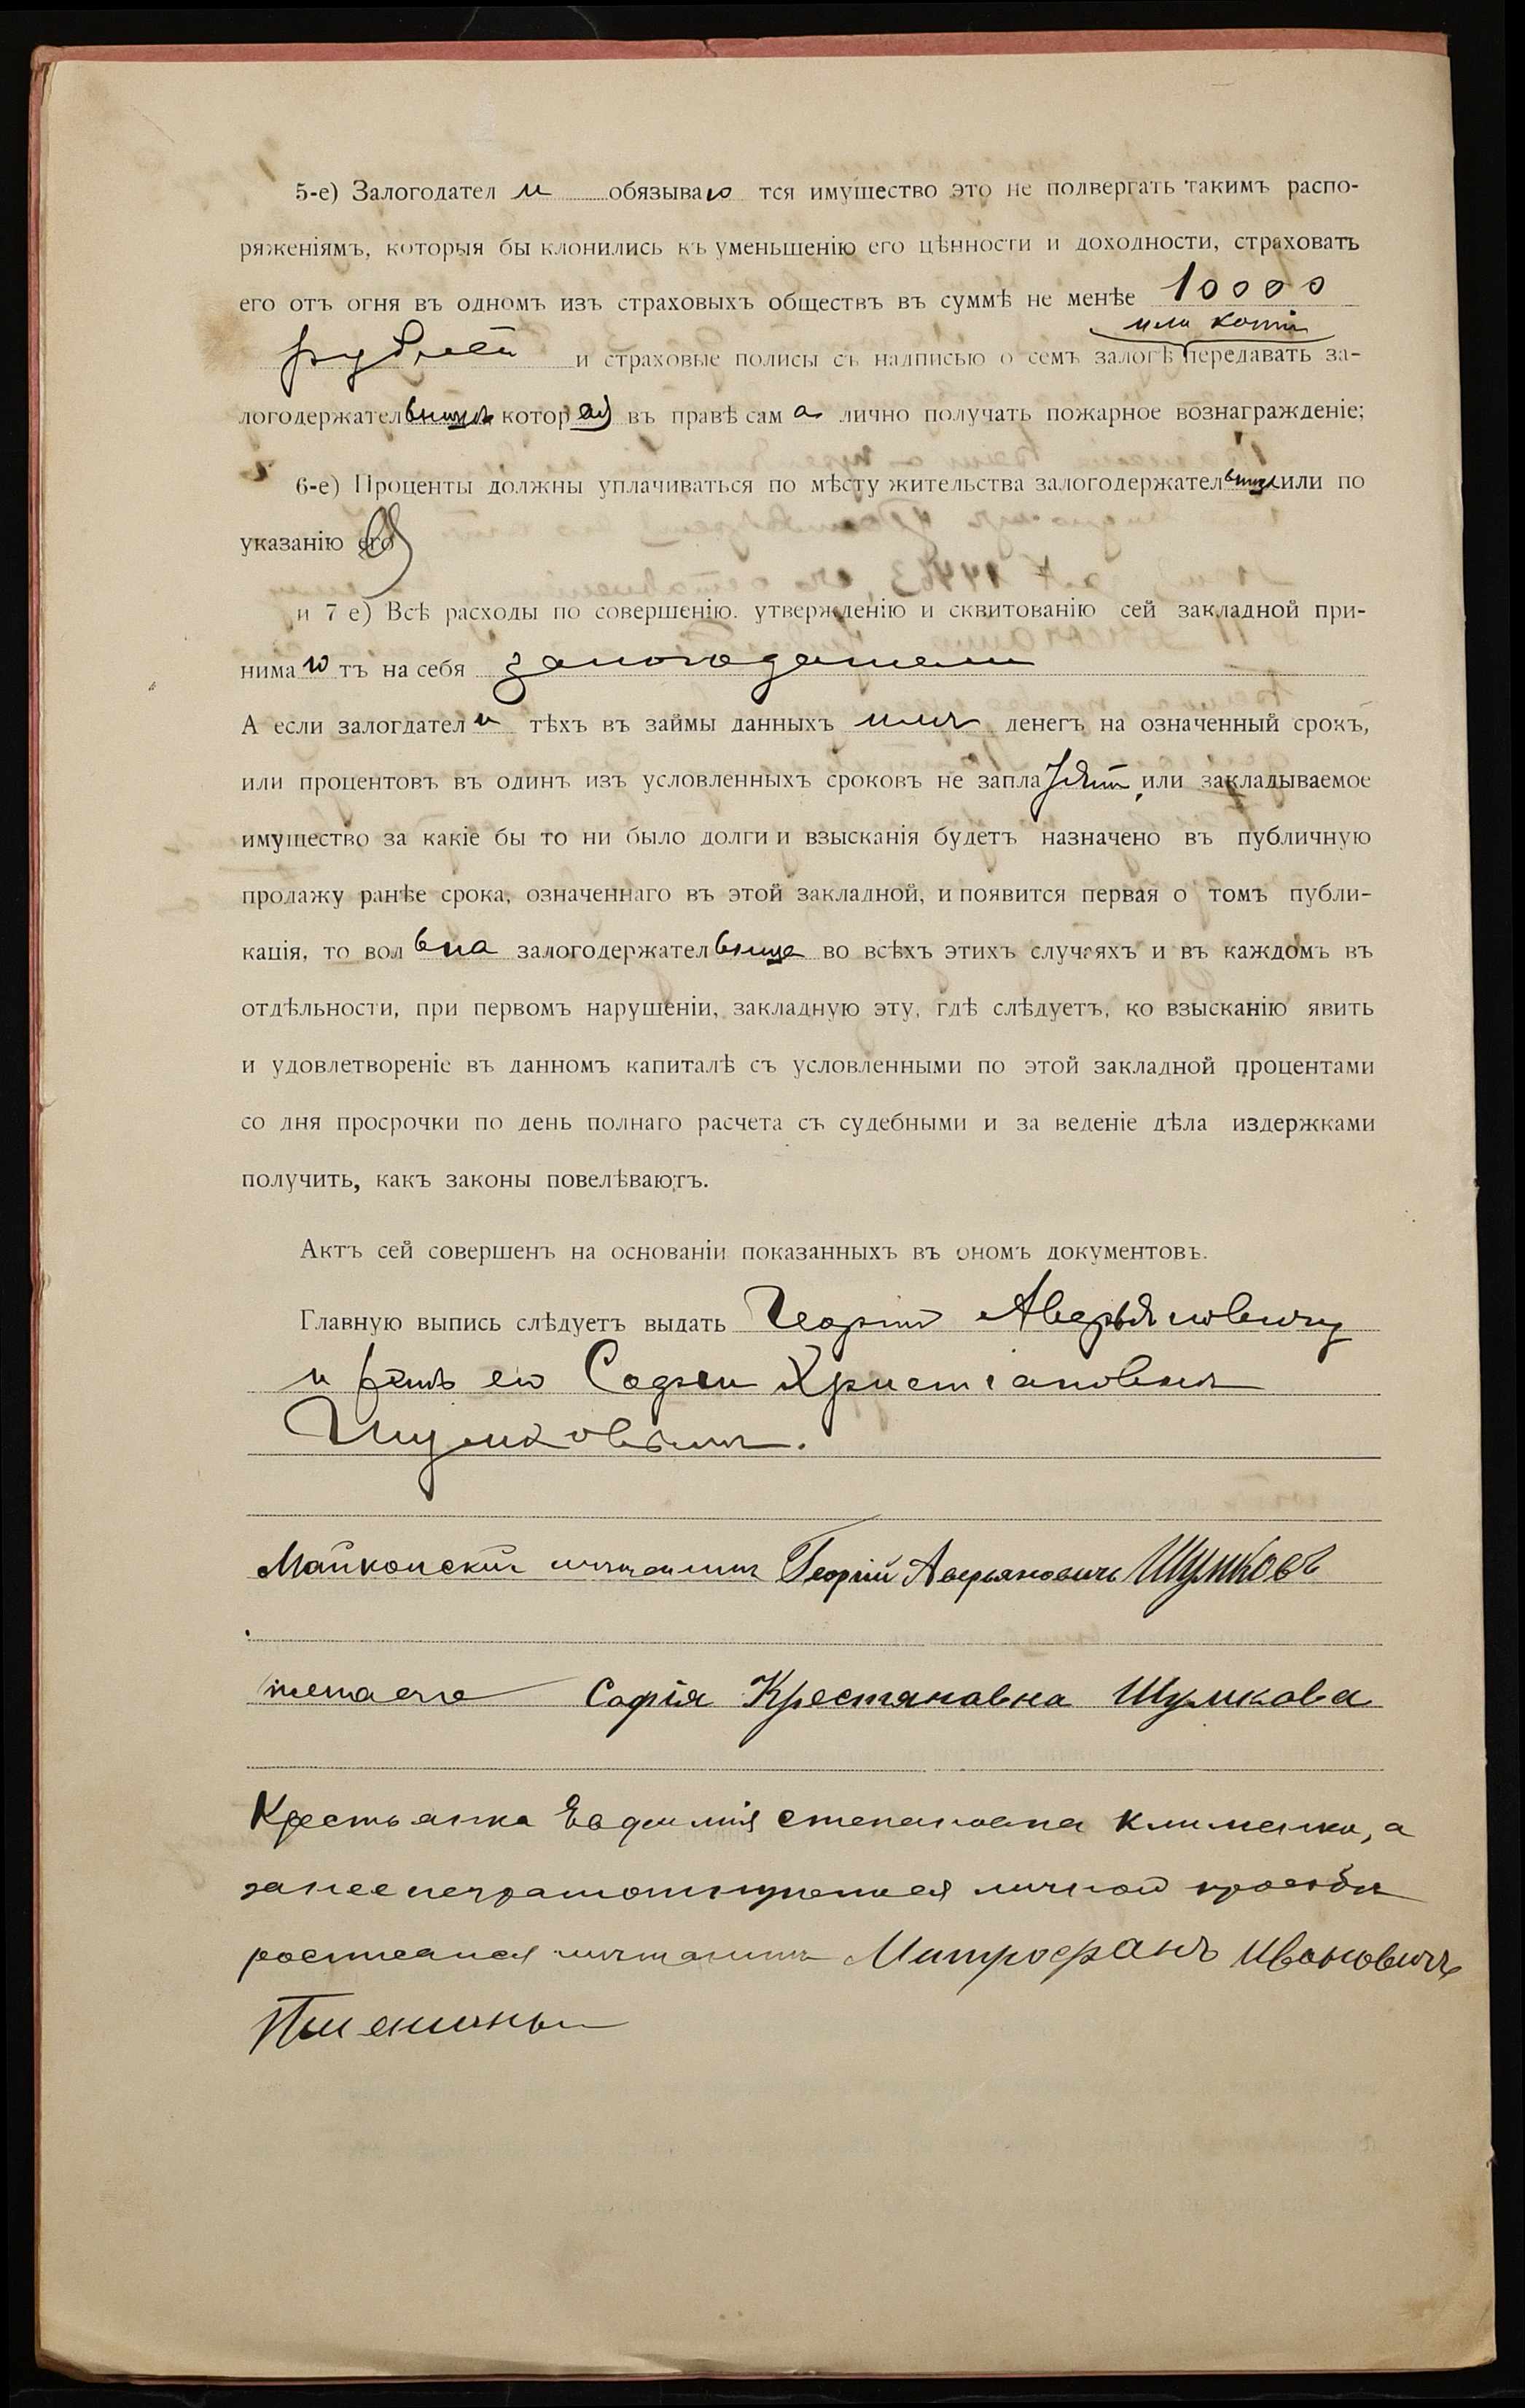 5-е) Залогодател и обязываю тся имущество это не подвергать такимъ распо-
ряженіямъ, которыя бы клонились къ уменьшенію его цѣнности и доходности, страховать
его отъ огня въ одномъ изъ страховыхъ обществъ въ суммѣ не менѣе 10000
или копіи
рублей и страховые полисы съ надписью о семъ залогѣ передавать за-
логодержательницѣ которая въ правѣ сам а лично получать пожарное вознагражденіе;
6-е) Проценты должны уплачиваться по мѣсту жительства залогодержательницы или по
указанію ея
и 7 е) Всѣ расходы по совершенію. утвержденію и сквитованію сей закладной при-
нима ю тъ на себя залогодатели
А если залогдател и тѣхъ въ займы данныхъ имъ денегъ на означенный срокъ,
или процентовъ въ одинъ изъ условленныхъ сроковъ не заплатятъ, или закладываемое
имущество за какіе бы то ни было долги и взысканія будетъ назначено въ публичную
продажу ранѣе срока, означеннаго въ этой закладной, и появится первая о томъ публи-
кація, то вол ьна залогодержательница во всѣхъ этихъ случаяхъ и въ каждомъ въ
отдѣльности, при первомъ нарушеніи, закладную эту, гдѣ слѣдуетъ, ко взысканію явить
и удовлетвореніе въ данномъ капиталѣ съ условленными по этой закладной процентами
со дня просрочки по день полнаго расчета съ судебными и за веденіе дѣла издержками
получить, какъ законы повелѣваютъ.
Актъ сей совершенъ на основаніи показанныхъ въ ономъ документовъ.
Главную выпись слѣдуетъ выдать Георгію Аверьяновичу
и женѣ его Софіи Христіановнѣ
Шумковымъ.
Майкопскій мѣщанинъ Георгій Аверьяновичъ Шумковъ
жена его Софія Крестяновна Шумкова
Крестьянка Евфимія Степановна Клименко, а
за нее неграмотную по ея личной просьбѣ
росписался мѣщанинъ Митрофанъ Ивановичъ
Пшеничный